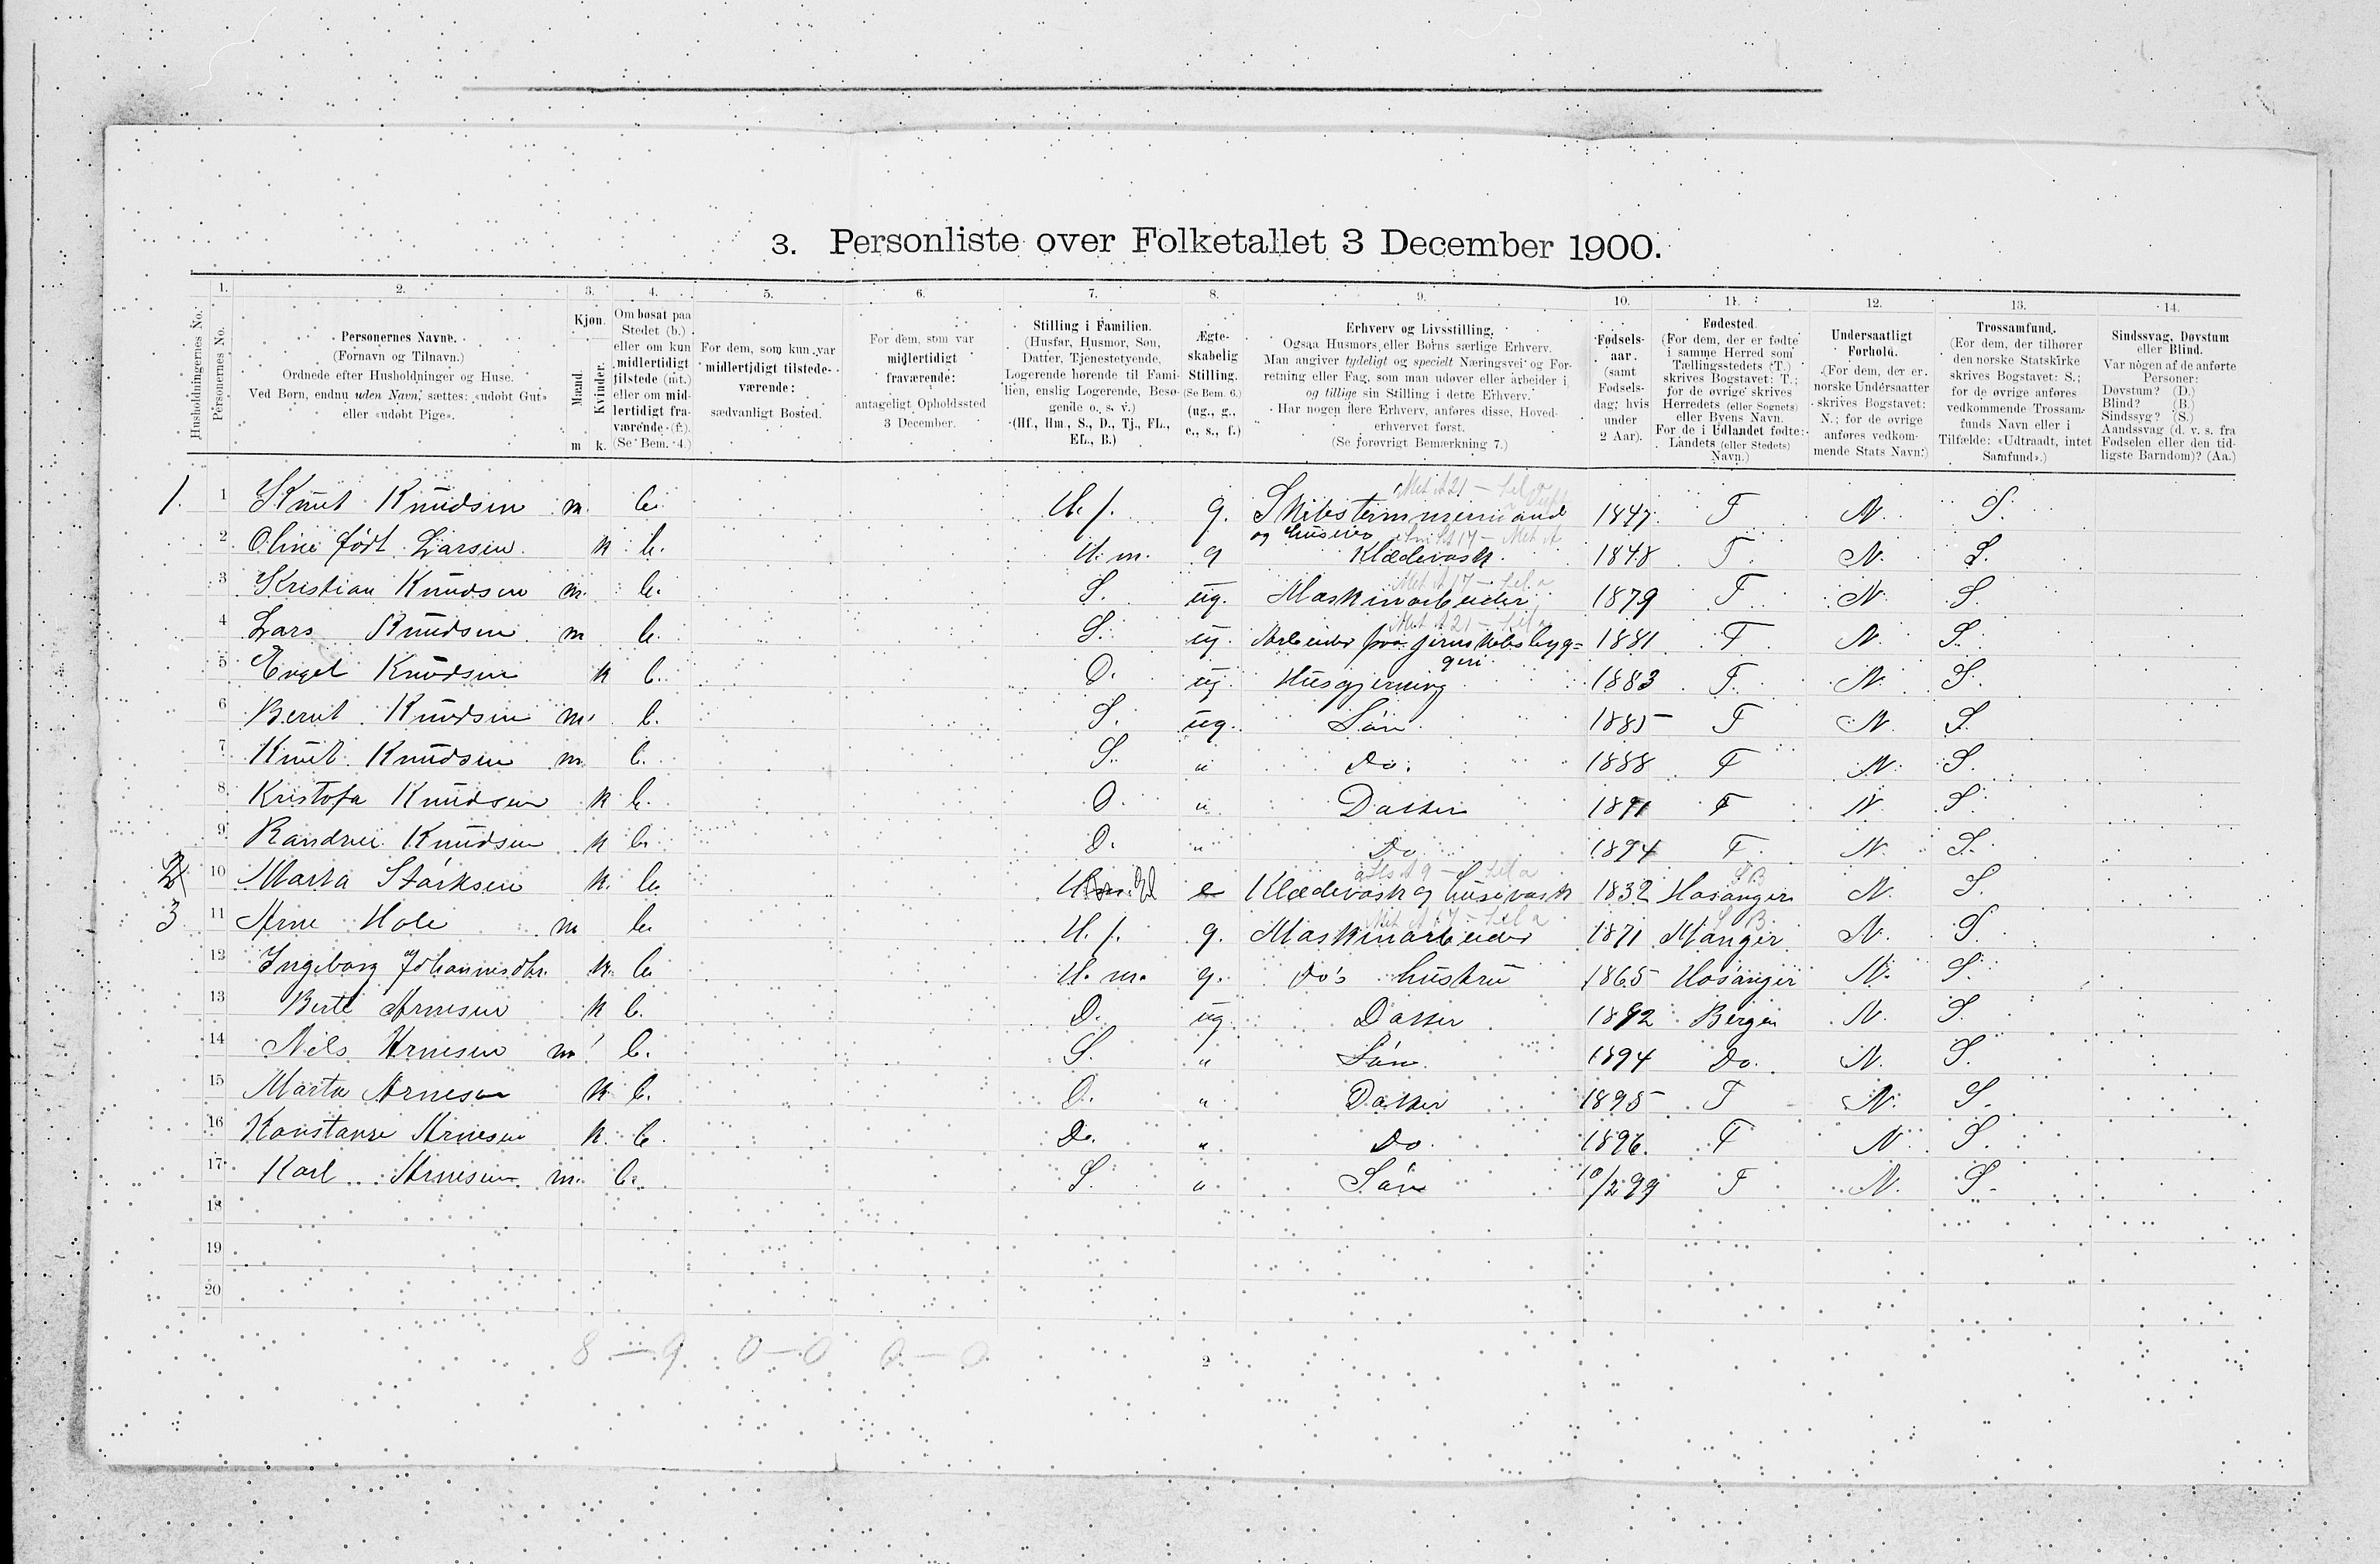 3. Personliste over Folketallet 3 December 1900.
1. 2. 3. 4. 5. 6. 7. 8. 9. 10. 11. 12. 13. 14.
Husholdningernes No.
Personernes No.
Personernes Navne.
(Fornavn og Tilnavn.)
Ordnede efter Husholdninger og Huse.
Ved Børn, endnu uden Navn, sættes: «udøbt Gut»
eller «udøbt Pige».
Kjøn.
Mænd.
Kvinder.
m k.
Om bosat paa
Stedet (b.)
eller om kun
midlertidigt
tilstede (mt.)
eller om mid-
lertidigt fra-
værende (f.).
(Se Bem. 4.)
For dem, som kun var
midlertidigt tilstede-
værende:
sædvanligt Bosted.
For dem, som var
midlertidigt
fraværende:
antageligt Opholdssted
3 December.
Stilling i Familien.
(Husfar, Husmor, Søn,
Datter, Tjenestetyende,
Logerende hørende til Fami-
lien, enslig Logerende, Besø-
gende o. s. v.)
(Hf., Hm., S., D., Tj., FL.,
EL., B.)
Ægte-
skabelig
Stilling.
(Se Bem. 6.)
(ug., g.,
e., s., f.)
Erhverv og Livsstilling.
Ogsaa Husmors eller Børns særlige Erhverv.
Man angiver tydeligt og specielt Næringsvei og For-
retning eller Fag, som man udøver eller arbeider i,
og tillige sin Stilling i dette Erhverv.
Har nogen flere Erhverv, anføres disse, Hoved-
erhvervet først.
(Se forøvrigt Bemærkning 7.)
Fødsels-
aar.
(samt
Fødsels-
dag, hvis
under
2 Aar).
Fødested.
(For dem, der er fødte
i samme Herred som
Tællingsstedets (T.)
skrives Bogstavet: T.;
for de øvrige skrives
Herredets (eller Sognets)
eller Byens Navn.
For de i Udlandet fødte:
Landets (eller Stedets)
Navn.)
Undersaatligt
Forhold.
(For dem, der er
norske Undersaatter
skrives Bogstavet:
N.; for de øvrige
anføres vedkom-
mende Stats Navn.)
Trossamfund.
(For dem, der tilhører
den norske Statskirke
skrives Bogstavet: S.;
for de øvrige anføres
vedkommende Trossam-
funds Navn eller i
Tilfælde: «Udtraadt, intet
Samfund».)
Sindssvag, Døvstum
eller Blind.
Var nogen af de anførte
Personer:
Døvstum? (D.)
Blind? (B.)
Sindssyg? (S.)
Aandssvag (d. v. s. fra
Fødselen eller den tid-
ligste Barndom)? (Aa.)
1. 1 Knut Knudsen m. b. H. f. g. Skibstømmermand 1847. T N. S.
og Huseier
2 Oline født Larsen. k b. H. m. g Klædevask. 1848 T. N. S.
3 Kristian Knudsen m. b. S. ug. Maskinarbeider 1879 T N. S.
4 Lars Knudsen. m b. S. ug. Arbeider paa jernskibsbyg= 1881 T N. S.
geri
5 Engel Knudsen k b. D. ug. Husgjerning 1883 T. N. S.
6 Bernt Knudsen m. b. S. ug. Søn 1885 T N. S.
7 Knut Knudsen m. b. S. " Do. 1888 T N. S.
8 Kristofa Knudsen k b. D. " Datter 1891 T N. S.
9 Randvei Knudsen k b. D. " Do 1894 T N. S.
2 10 Marta Størksen k. b. El e Klædevask og husevask 1832 Hosanger N. S.
3 11 Arne Hole m b. H. f. g. Maskinarbeider 1871 Manger N. S.
12 Ingeborg Johannesdtr. k. b. H. m. g. Do's hustru 1865 Hosanger N. S.
13 Berte Arnesen k b. D. ug. Datter 1892 Bergen N. S.
14 Nils Arnesen m b. S. " Søn 1894 Do. N. S.
15 Marta Arnesen k b. D. " Datter 1895 T N. S.
16 Konstanse Arnesen k. b. Do. " Do. 1896. T N S.
17 Karl Arnesen m. b. S. " Søn 10/2 99 T N. S.
18
19
20
8 — 9 0 — 0 0 — 0
2